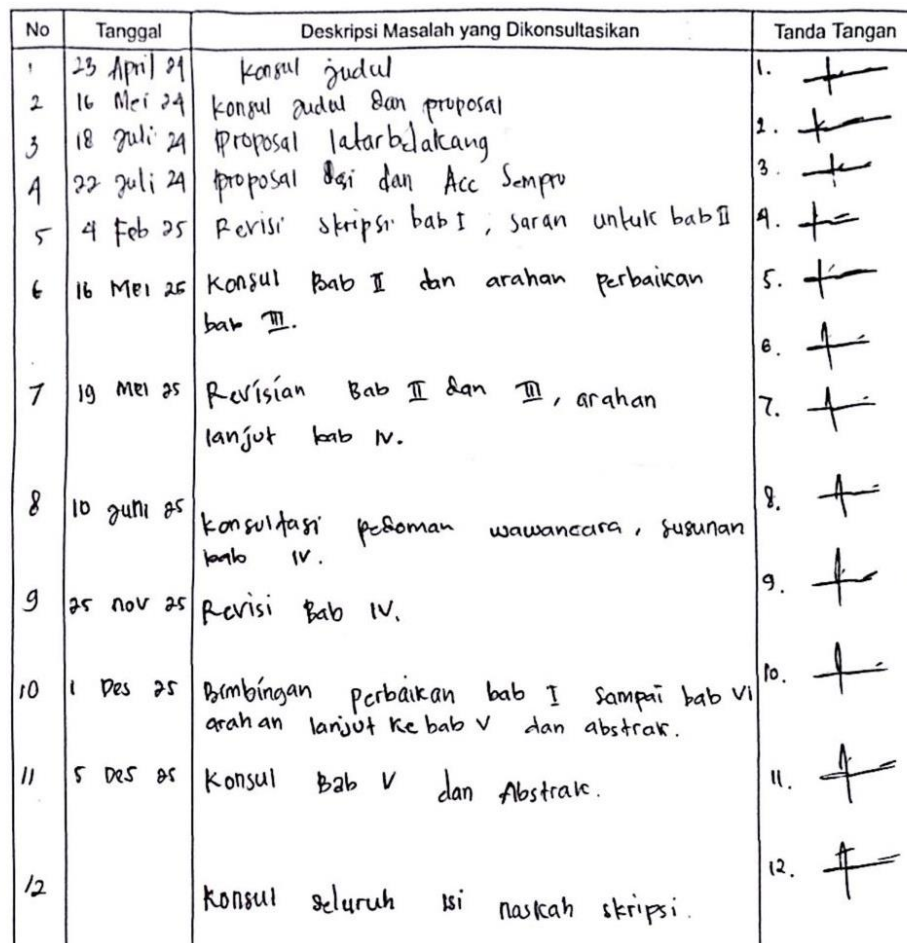 No Tanggal Deskripsi Masalah yang Dikonsultasikan Tanda Tangan
1 23 April 24 Konsul judul 1.
2 16 Mei 24 Konsul judul dan proposal 2.
3 18 Juli 24 Proposal latarbelakang 3.
4 22 Juli 24 proposal isi dan Acc Sempro
5 4 Feb 25 Revisi skripsi bab I, saran untuk bab II 4.
6 16 Mei 25 Konsul Bab II dan arahan perbaikan 5.
bab III.
6.
7 19 Mei 25 Revisian Bab II dan III, arahan 7.
lanjut bab IV.
8 10 Juni 25 8.
Konsultasi pedoman wawancara, susunan
bab IV.
9 25 nov 25 Revisi Bab IV. 9.
10 1 Des 25 Bimbingan perbaikan bab I sampai bab VI 10.
arahan lanjut ke bab V dan abstrak.
11 5 Des 25 Konsul Bab V dan Abstrak. 11.
12 12.
Konsul seluruh isi naskah skripsi.